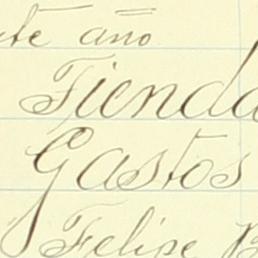 este año
Tienda
Gastos
Felipe B